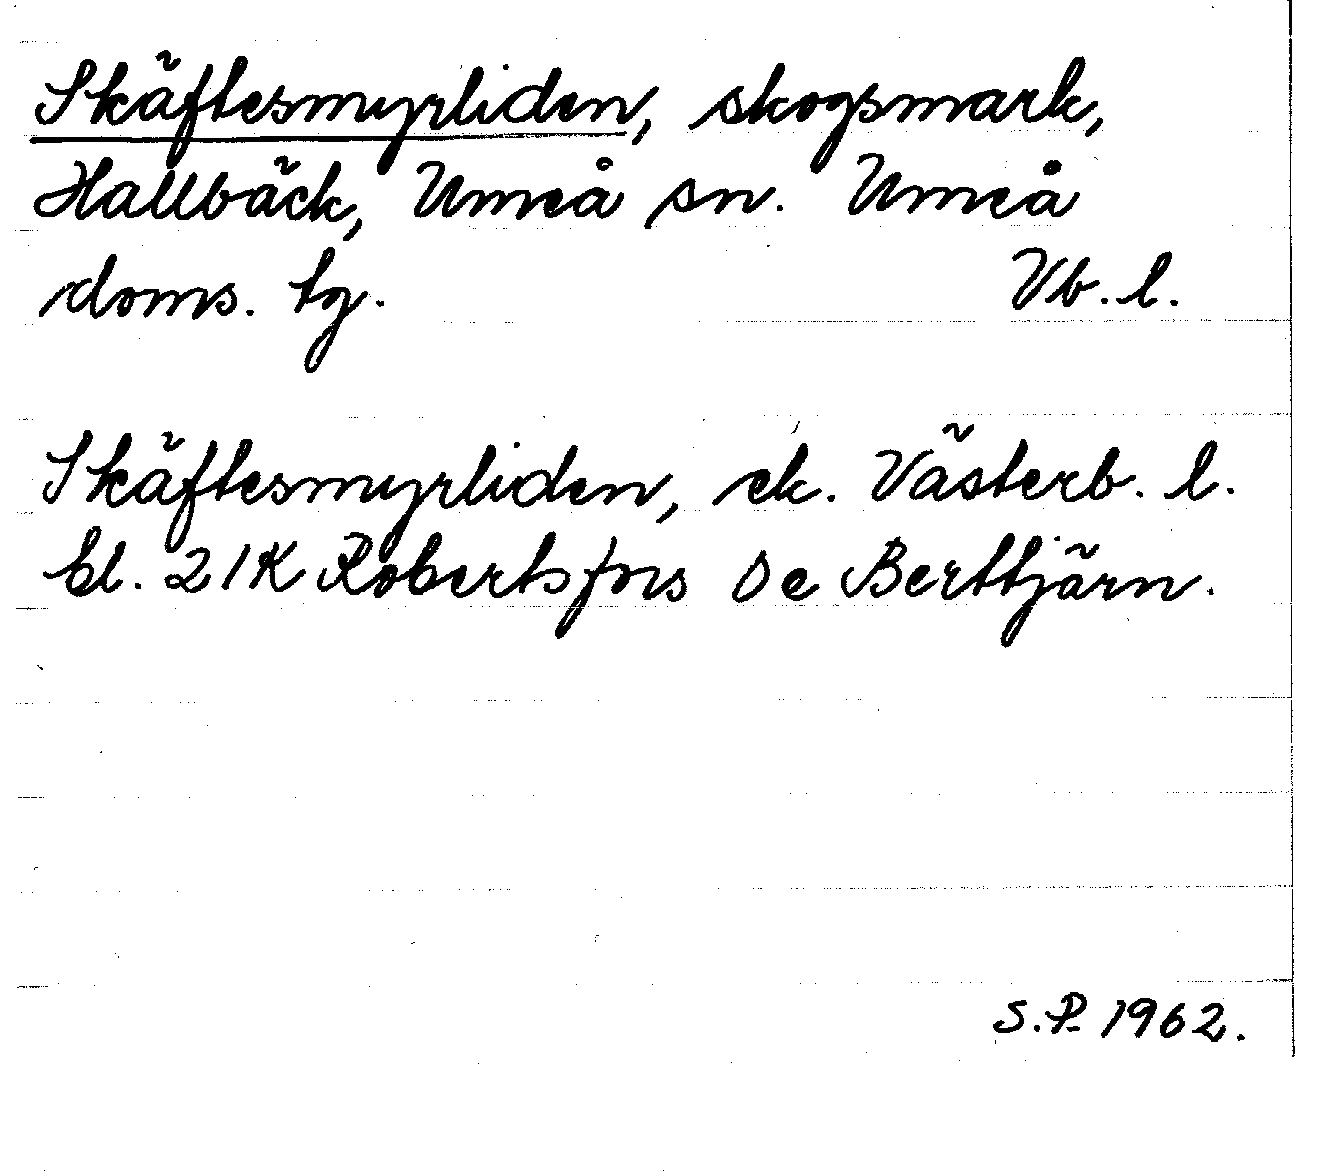 Skäftesmyrliden, skogsmark,
Hallbäck, Umeå sn. Umeå
doms. tg. Vb. l.
Skäftesmyrliden, ek. Västerb. l.
bl. 21K Robertsfors Se Berttjärn.
S.P. 1962.